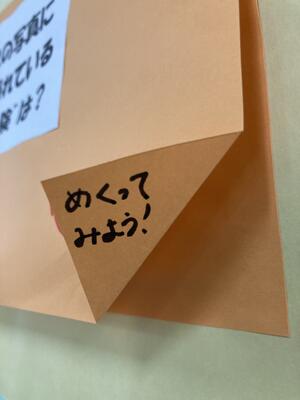 の写真に
れている
険"は?
めくって
みよう!